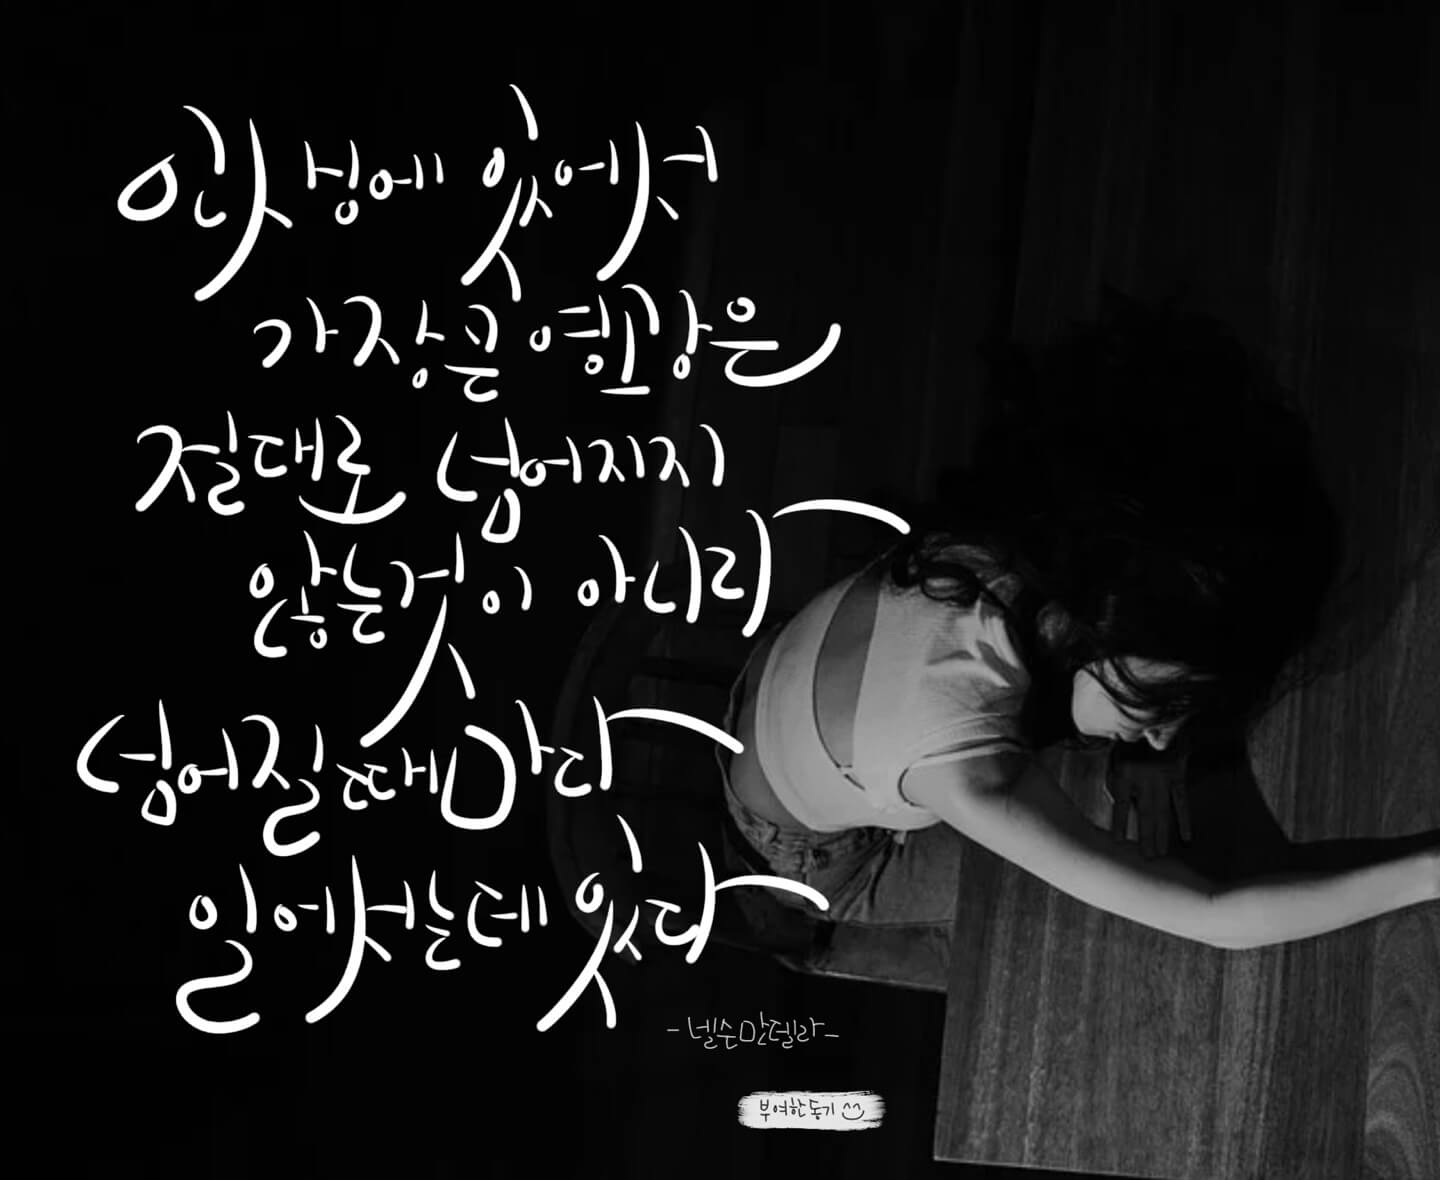 인생에 있어서
가장 큰 영광은
절대로 넘어지지
않는 것이 아니라
넘어질 때마다
일어서는데 있다
-넬슨만델라-
부여한 동기^^